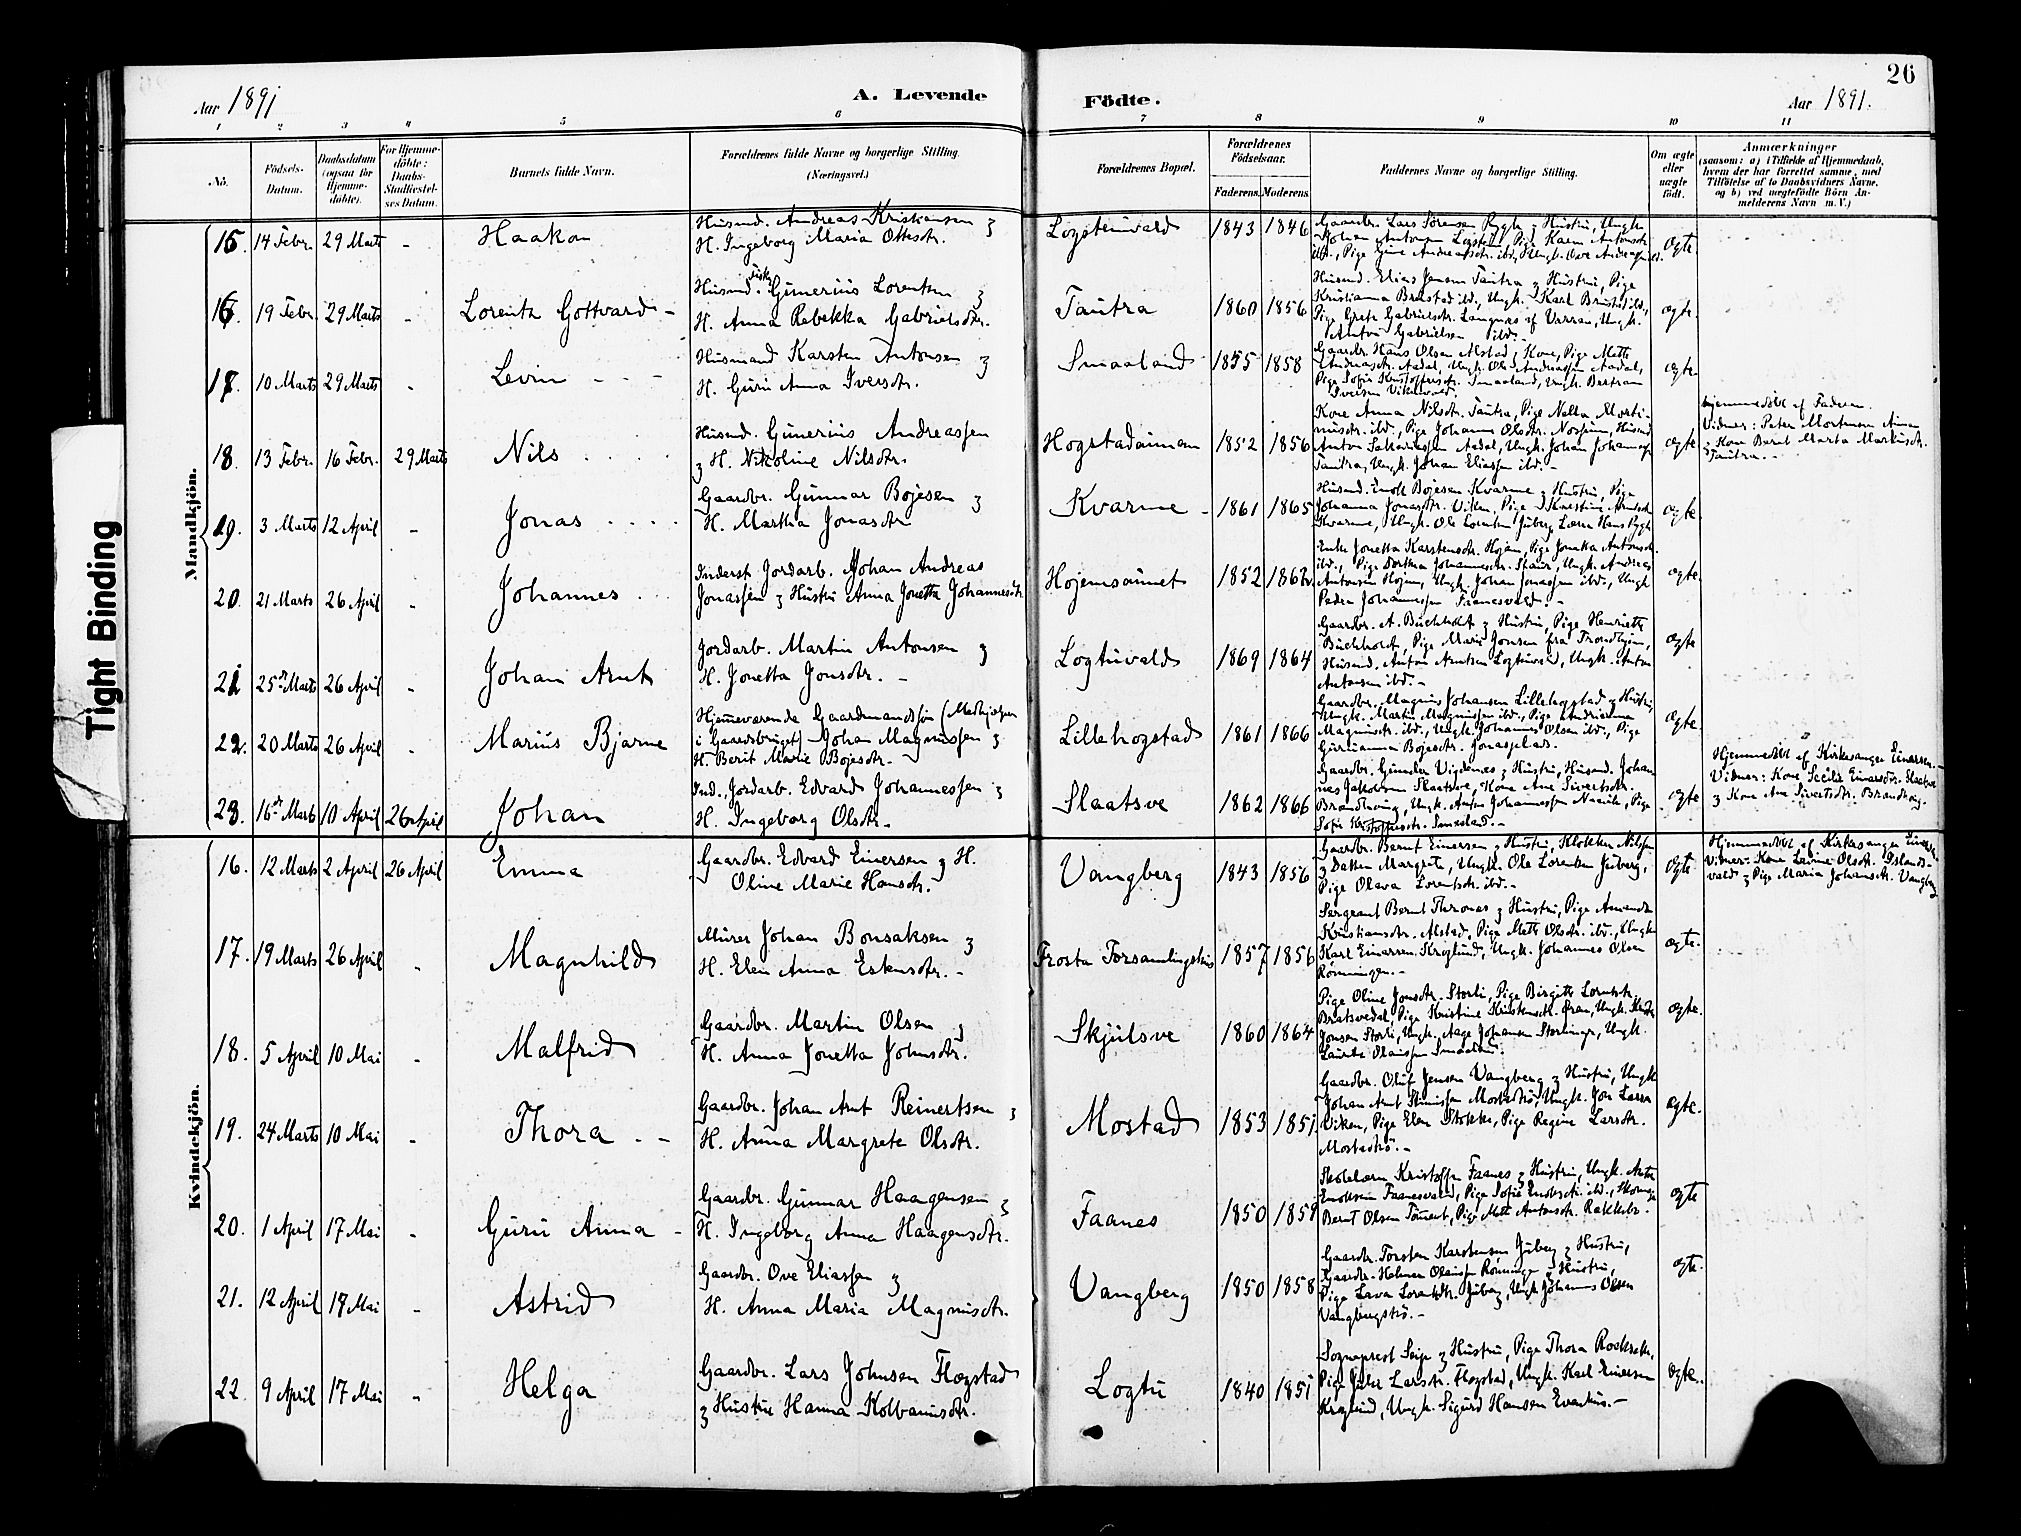 26
Aar 1891
A. Levende
Födte.
Aar 1891.
1 2 3 4 5 6 7 8 9 10 11
No.
Födsels-Datum.
Daabsdatum (ogsaa för Hjemme-döbte).
For Hjemme-döbte: Daabs-Stadfæstel-ses Datum.
Barnets fulde Navn.
Forældrenes fulde Navne og borgerlige Stilling. (Næringsvei.)
Forældrenes Bopæl.
Forældrenes Födselsaar.
Faderens. Moderens.
Faddernes Navne og borgerlige Stilling.
Om ægte eller uægte födt.
Anmærkninger
(saasom: a) i Tilfælde af Hjemmedaab, hvem der har forrettet samme, med Tilföielse af to Daabsvidners Navne, og b) ved uegtefödte Börn An-melderens Navn m. V.)
Tight Binding
Mandkjön.
15. 14 Febr. 29 Marts - Haakon
Husmd. Andreas Kristiansen &
H. Ingeborg Maria Ottesdtr.
Logtunvald 1843 1846
Gaardbr. Lars Sörensen Rygh & Hustru, Ungk.
ægte.
16. 19 Febr. 29 Marts - Lorents Gottvard -
Husmd. Fisk. Gunerius Lorentsen &
H. Anna Rebekka Gabrielsdtr.
Tautra 1860 1856
Husmd. Elias Jensen Tautra & Hustru, Pige
Pige Grete Gabrielsdtr. Langnes af Værran, Ungk.
Anton Gabrielsen ibd.
ægte.
17. 10 Marts 29 Marts - Levin
Husmand Karsten Antonsen &
H. Guru Anna Iversdtr.
Smaaland 1855 1858
Gaardbr. Hans Olsen Alstad & Kone, Pige Mette
Andreasdtr. Aadal, Ungk. Ole Andreassen Aadal,
Pige Sofie Kristoffersdtr. Smaaland, Ungk. Bertram
Iversen Vikavald.
ægte
18. 13 Febr. 16 Febr. 29 Marts Nils
Husmd. Gunerius Andreassen
& H. Nikoline Nilsdtr.
Hogstadaunan 1852 1856
Kone Anna Nilsdtr. Tautra, Pige Nella Marti-
nusdtr. ibd., Pige Johanna Olsdtr. Nossum, Husmd.
Anton Sakariassen Aadal, Ungk. Johan Johannes
Tautra, Ungk. Johan Eliassen ibd. -
ægte
Hjemmedöbt af Faderen.
Vidner: Peter Mortensen Aunan
& Kone Berit Marta Markusdtr.
Tautra. -
19. 3 Marts 12 April - Jonas
Gaardbr. Gunnar Bojesen &
H. Martha Jonasdtr
Kvarme - 1861 1865
Husmd. Enok Bojesen Kvarme & Hustru, Pige
Johanna Jonasdtr. Viken, Pige
Kvarme, Ungk. Ole Lorentsen Juberg, Lærer Hans Rygh
ægte
20. 21 Marts 26 April - Johannes
Inderst Jordarb. Johan Andreas
Jonassen & Hustru Anna Jonetta Johannesdtr
Hojemsaunet 1852
Enke Jonetta Karstensdtr. Hojem, Pige Jonetta Antonsdtr.
Antonsen Hojem, Ungk. Johan Jonassen ibd., Ungk.
Peder Johannessen Faanesvald. -
ægte
21. 25de Marts 26 April - Johan Arnt
Jordarb. Martin Antonsen &
H. Jonetta Jonsdtr. -
Logtuvald 1869 1864
Gaardbr. A. Buchholdt & Hustru, Pige Henriette
Buchholdt, Pige Marie Jonsen fra Trondhjem,
Husmd. Anton Arntsen Logtuvald, Ungk. Anton
Antonsen ibd. -
ægte
22. 20 Marts 26 April - Marius Bjarne
Hjemmeværende Gaardmandssön (Medhjælper
i Gaardsbruget) Johan Magnussen &
H. Berit Marie Bojesdtr. -
Lillehogstad 1861 1866
Gaardbr. Magnus Johansen Lillehogstad & Hustru,
Ungk. Martin Magnussen ibd., Pige Andrianna
Magnusdtr. ibd., Ungk. Johannes Olsen ibd., Pige
Gurianna Bojesdtr. Jonasplads.
ægte.
23. 16de Marts 10 April 26 April Johan
Ind., Jordarb. Edvard Johannessen &
H. Ingeborg Olsdtr. -
Slaatsve 1862 1866
Gaardbr. Gunder Vigdenes & Hustru, Husmd. Johan-
nes Jakobsen Slaatsve, Kone Ane Sivertsdtr.
Sofie Kristoffersdtr. Smaaland. -
ægte
Hjemmedöbt af Kirkesanger Einarsen. -
Vidner: Kone Secilie Einarsdtr. Slaatsve
& Kone Ane Sivertsdtr. Brandhaug.
Kvindekjön.
16. 12 Marts 2 April 26 April Emma
Gaardbr. Edvard Einersen & H.
Oline Marie Hansdtr.
Vangberg 1843 1856
Gaardbr. Bernt Einersen & Hustru, Klokker Nilssen
& Datter Margrete, Ungk. Ole Lorentsen Juberg,
Pige Olava Lorentsdtr. ibd. -
ægte.
Hjemmedöbt af Kirkesanger Einarsen
Vidner: Kone Lavine Olsdtr. Islands-
vald & Pige Maria Johansdtr. Vangberg
17. 19 Marts 26 April - Magnhild
Murer Johan Bonsaksen &
H. Elen Anna Estensdtr. -
Frosta Forsamlingshus 1857 1856
Sergeant Bernt Thronæs & Hustru, Pige Amanda
Kristiansdtr. Alstad, Pige Mette Olsdtr. ibd., Ungk.
Karl Einarsen Kroglund, Ungk. Johannes Olsen
Rönningen. -
ægte.
18. 5 April 10 Mai - Malfrid
Gaardbr. Martin Olsen &
H. Anna Jonetta Johnsdtr.
Skjulsve 1860 1864
Pige Oline Jonsdtr. Storli, Pige Birgitte Lorntsdtr.
Jonsen Storli, Ungk. Aage Johansen
Laurits Olaussen Smaaland.
ægte.
19. 24 Marts 10 Mai - Thora
Gaardbr. Johan Arnt Reinertsen &
H. Anna Margrete Olsdtr.
Mostad 1853 1851
Gaardbr. Oluf Jensen Vangberg & Hustru, Ungk.
Viken, Pige Elen Stokke, Pige Regine Larsdtr.
Mostadtrö. -
ægte.
20. 1 April 17 Mai - Guru Anna -
Gaardbr. Gunnar Haagensen &
H. Ingeborg Anna Haagensdtr.
Faanes 1850 1858
Skolelærer Kristoffer Faanes & Hustru, Ungk.
Bernt Olsen
ægte
21. 12 April 18 Mai - Astrid
Gaardbr. Ove Eliassen &
H. Anna Maria Magnusdtr.
Vangberg 1850 1858
Gaardbr. Torsten Karstensen Juberg & Hustru,
Gaardbr. Helmer Olaussen Rönningen & Hustru,
Pige Lava Lorentsdtr. Juberg, Ungk. Johannes Olsen
Vangbergtrö. -
ægte.
22. 9 April 17 Mai - Helga
Gaardbr. Lars Johnsen Flogstad
& Hustru Hanna Kolbanusdtr.
Logtu 1840 1851
Sogneprest Seip & Hustru, Pige Thora
Pige Julie Larsdtr. Flogstad, Ungk. Karl Einersen
Kroglund, Ungk. Sigurd Hansen Evenhus. -
ægte.